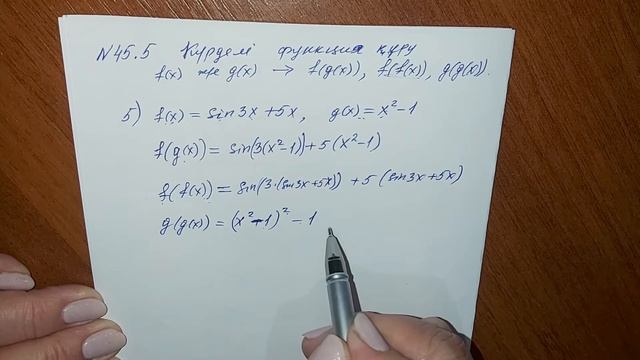 N45.5 Күрделі функция құру
f(x) және g(x) → f(g(x)), f(f(x)), g(g(x)).
5) f(x) = sin3x + 5x, g(x) = x² - 1
f(g(x)) = sin(3(x² - 1)) + 5(x² - 1)
f(f(x)) = sin(3·(sin3x + 5x)) + 5(sin3x + 5x)
g(g(x)) = (x² - 1)² - 1